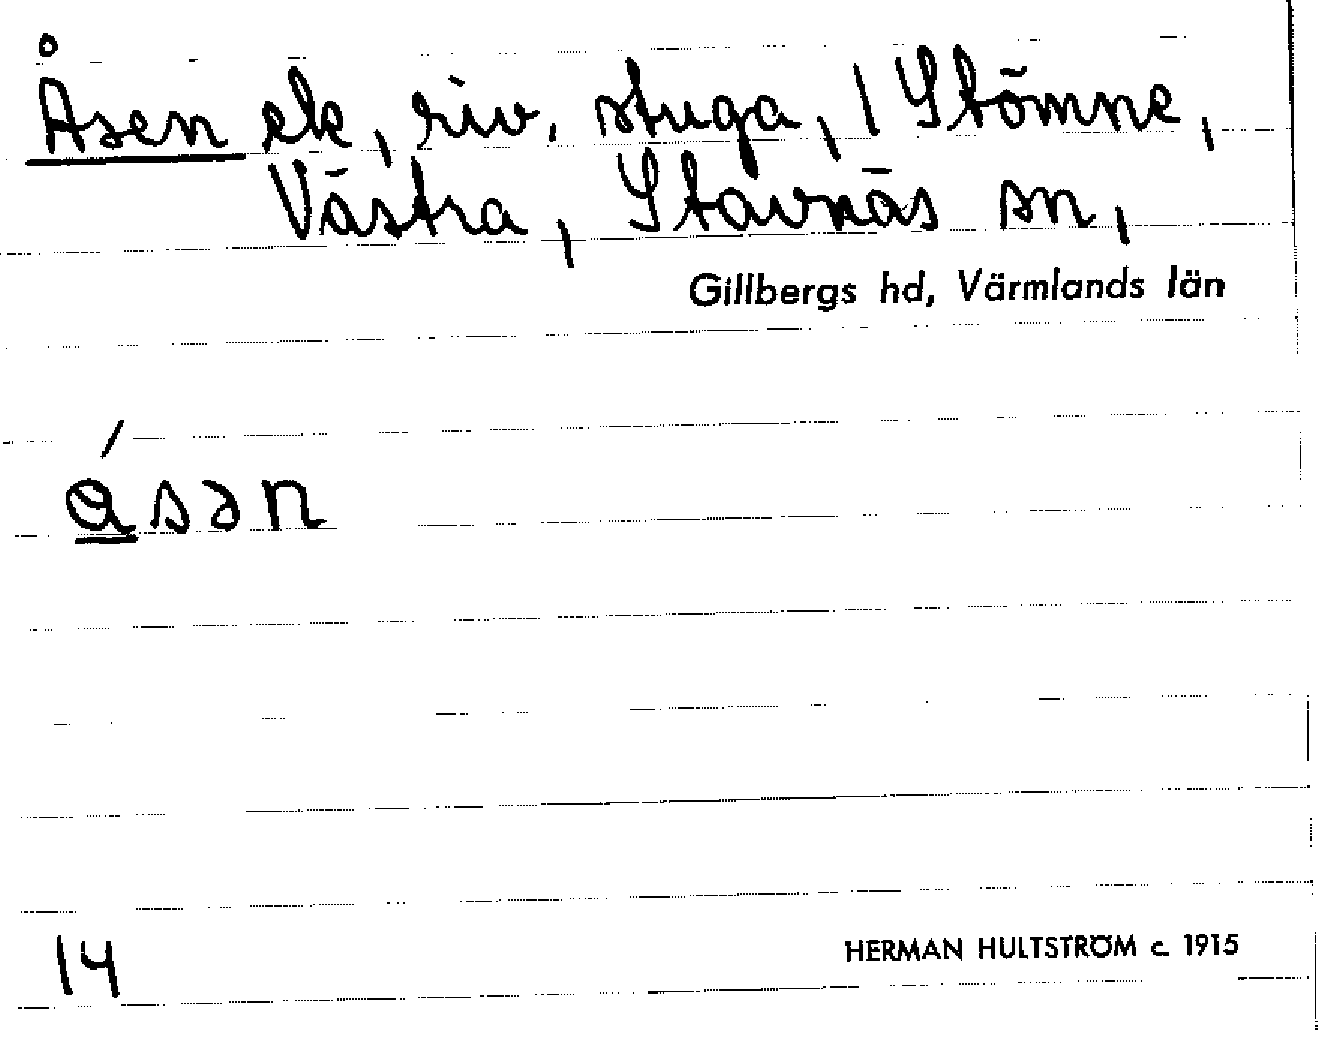 Åsen ek, riv. stuga, 1 Stömne,
Västra, Stavnäs sn,
Gillbergs hd, Värmlands län
ɑ́sən
14
HERMAN HULTSTRÖM c. 1915